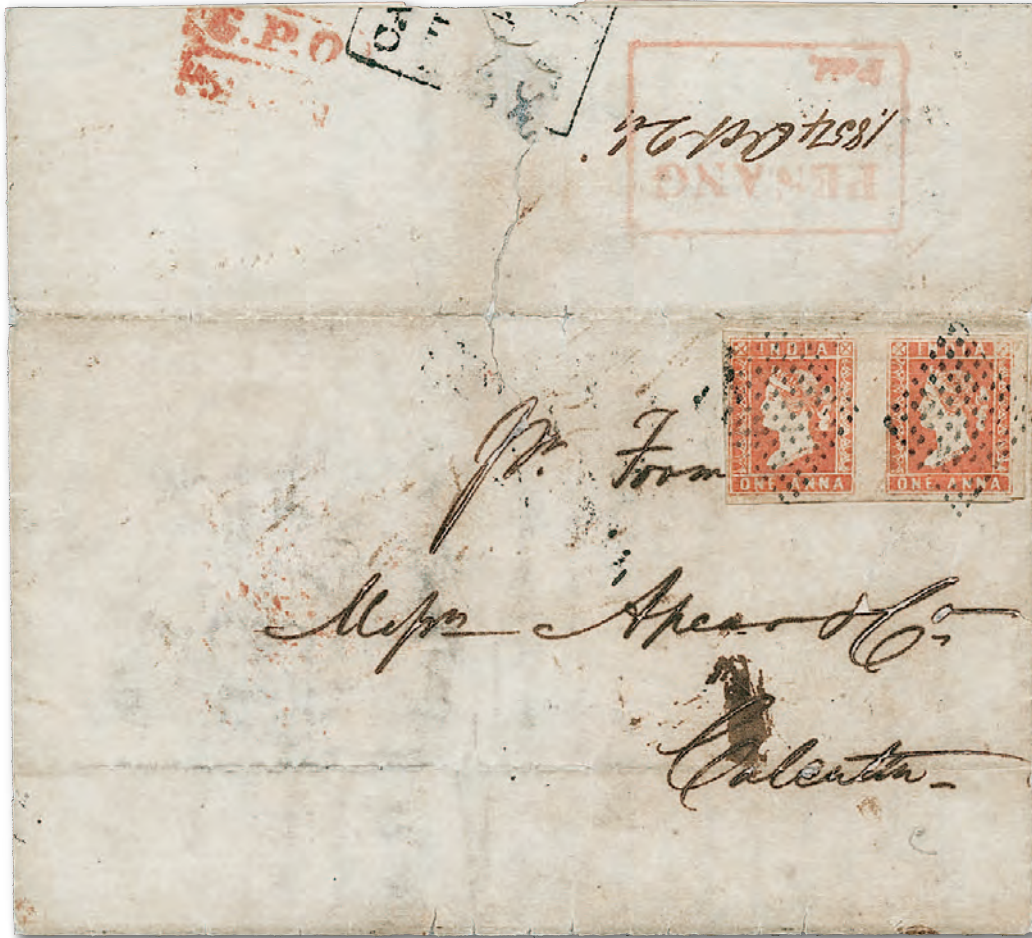 G.P.O
CA
PENANG
Paid.
1854 Oct 24
INDIA
ONE ANNA
INDIA
ONE ANNA
pr. Form
Messrs Apcar & Co.
Calcutta